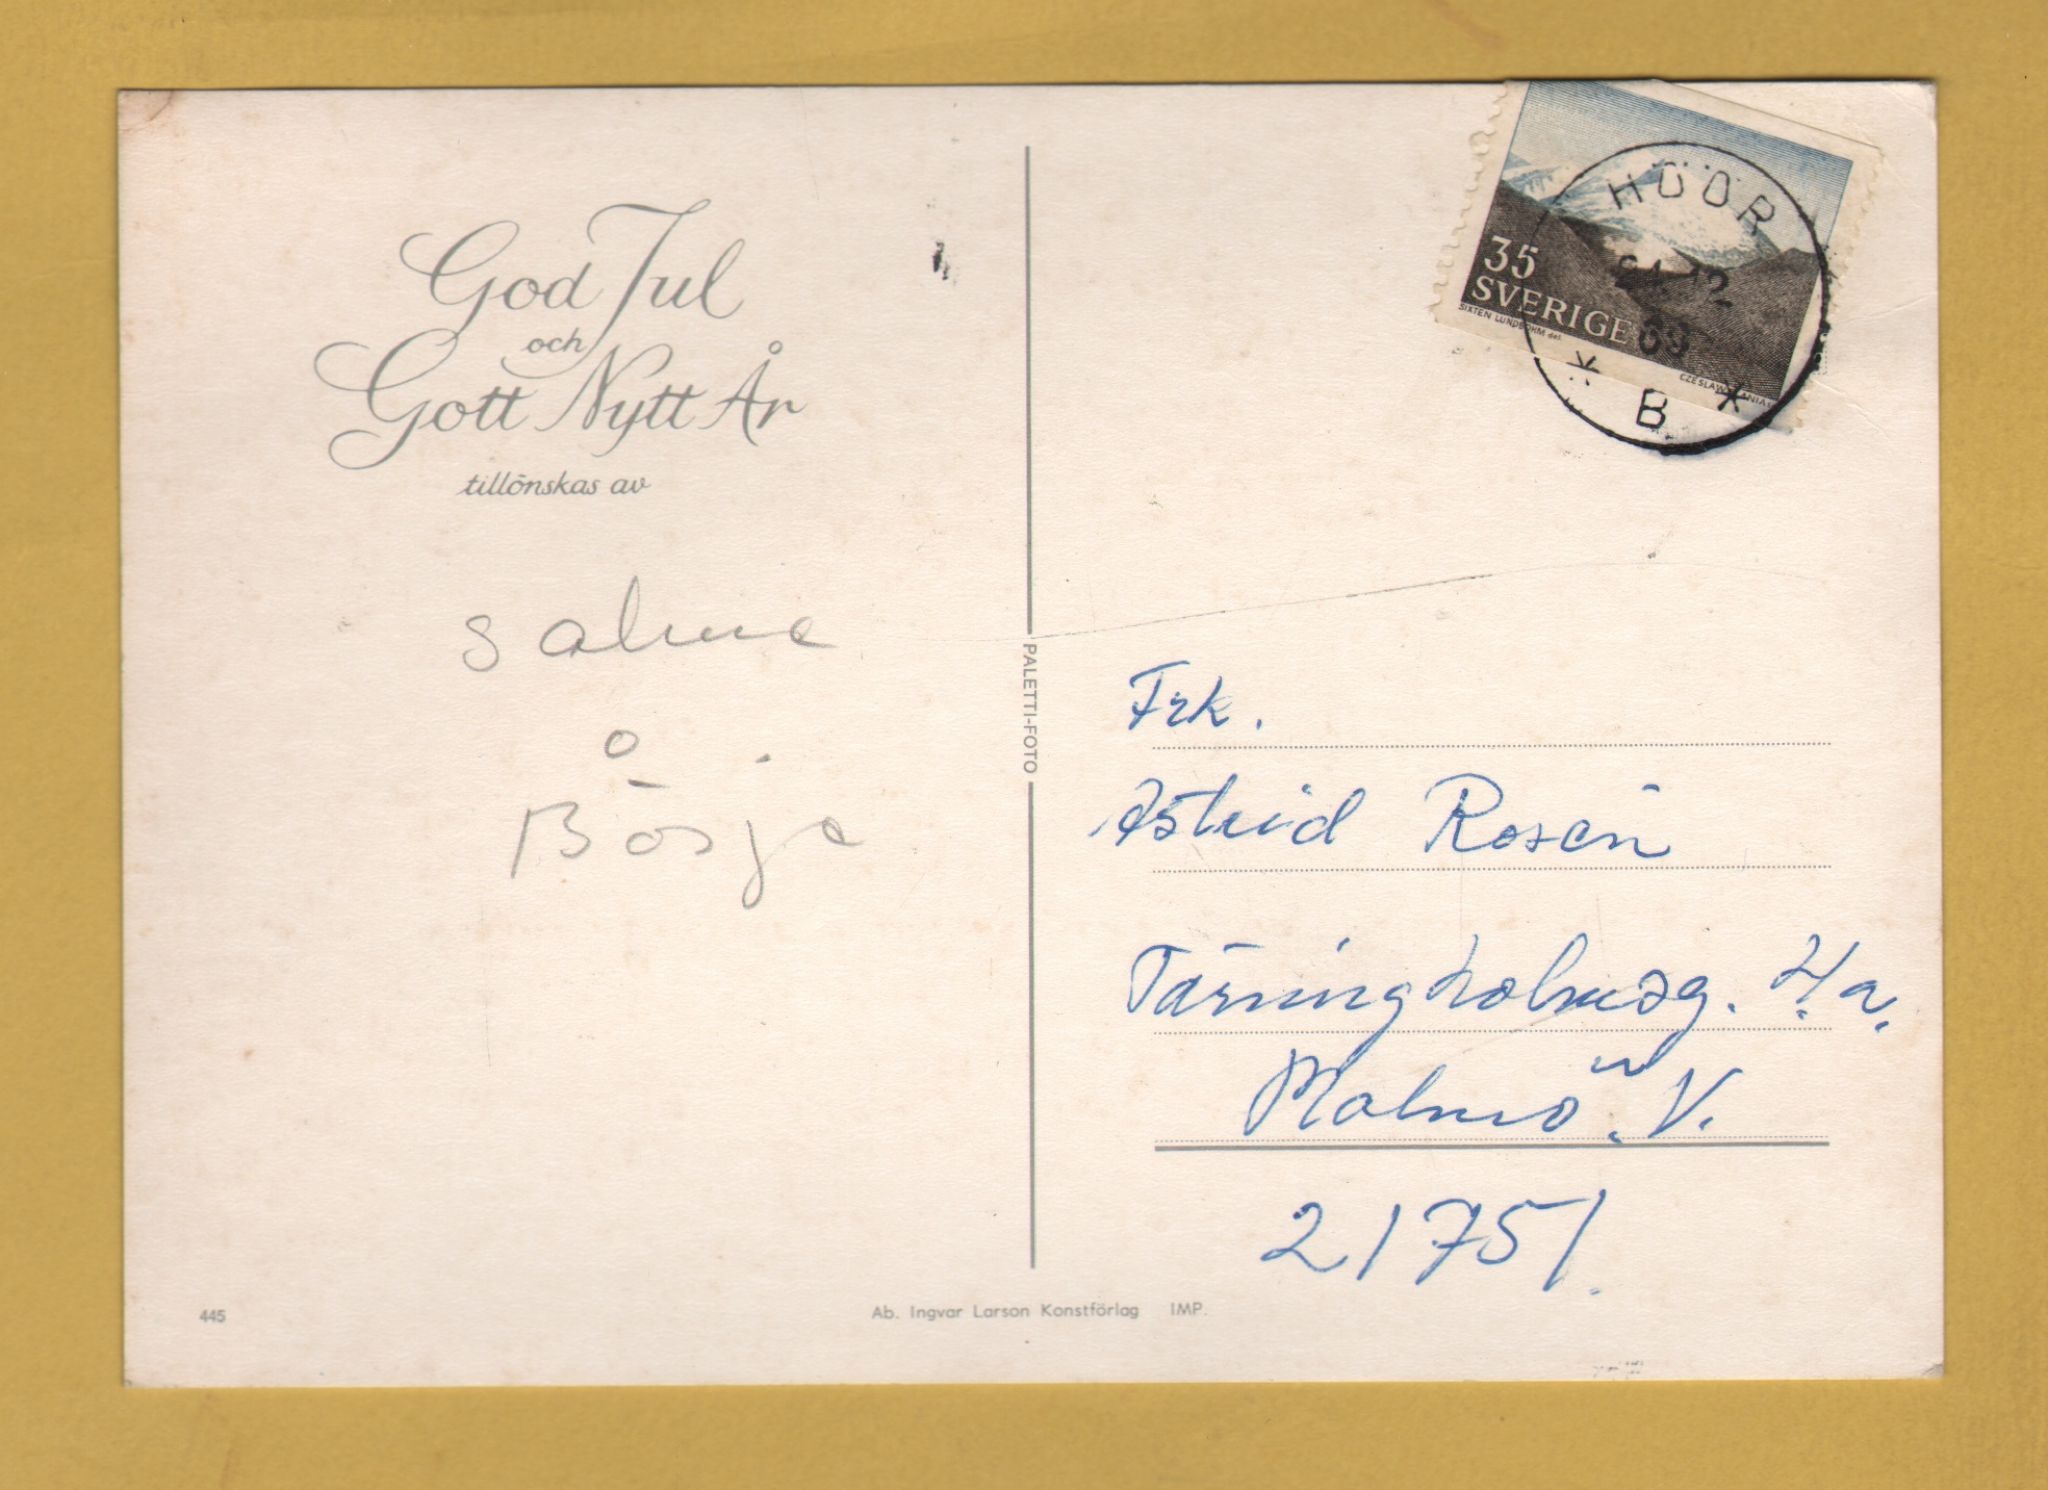 God Jul
och
Gott Nytt År
tillönskas av
Salme
o
Börje
PALETTI-FOTO
35
SVERIGE
SIXTEN LUNDBOHM del.
HÖÖR
12
69
* B *
Frk.
Astrid Rosén
Tärningholmsg. 4a.
Malmö. V.
21751.
445
Ab. Ingvar Larson Konstförlag IMP.